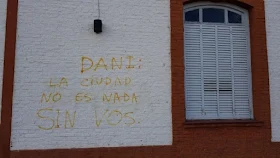 DANI:
LA CIUDAD
NO ES NADA
SIN VOS.